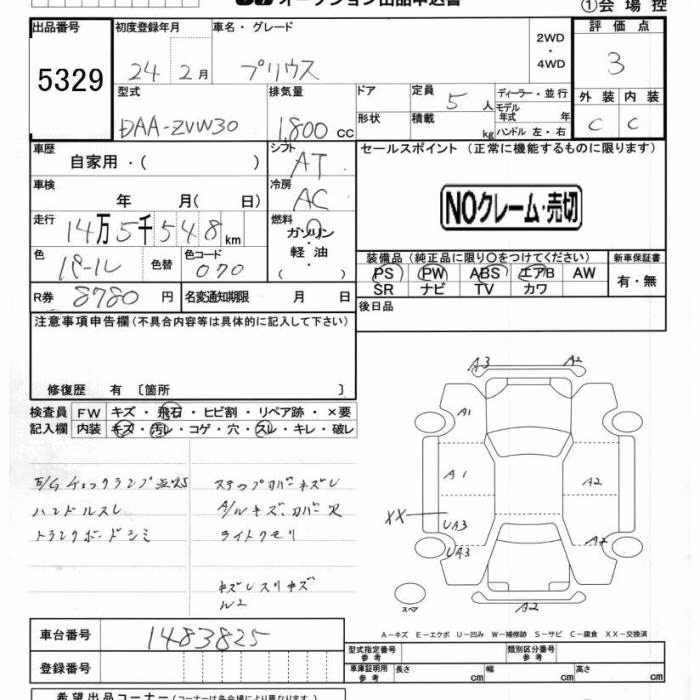 オークション出品申込書
①会場控
出品番号
5329
初度登録年月
24年 2月
車名・グレード
プリウス
2WD
・
4WD
評価点
3
型式
DAA-ZVW30
排気量
1,800 cc
ドア
形状
定員
5人
積載
kg
ディーラー・並行
モデル年式 年
ハンドル 左・右
外装 内装
C C
車歴
自家用・( )
シフト
AT
セールスポイント (正常に機能するものに限ります)
NOクレーム・売切
車検
年 月( 日)
冷房
AC
走行
14万5千548km
燃料
ガソリン
軽油
( ・ )
色
パール
色替
色コード
070
装備品 (純正品に限り〇をつけてください)
新車保証書
PS PW ABS エアB AW
SR ナビ TV カワ
有・無
R券 8780円
名変通知期限 月 日
後日品
注意事項申告欄 (不具合内容等は具体的に記入して下さい)
修復歴 有 〔箇所 〕
検査員記入欄
FW キズ・飛石・ヒビ割・リペア跡・×要
内装 キズ・汚レ・コゲ・穴・スレ・キレ・破レ
E/Gチェックランプ点灯
ハンドルスレ
トランクボードシミ
ステップカバーキズレ
A/Wキズ、カバー欠
ライトクモリ
キズ凹スリキズ
W2
A3 A2
A1
A1 A2
XX
UA3
UA3 A2
スペア
A2
A-キズ E-エクボ U-凹み W-補修跡 S-サビ C-腐食 XX-交換済
車台番号
1483825
登録番号
型式指定番号
参考
類別区分番号
参考
車庫証明用
参考
長さ cm 幅 cm 高さ cm
希望出品コーナー (コーナーは各会場によって異なります)